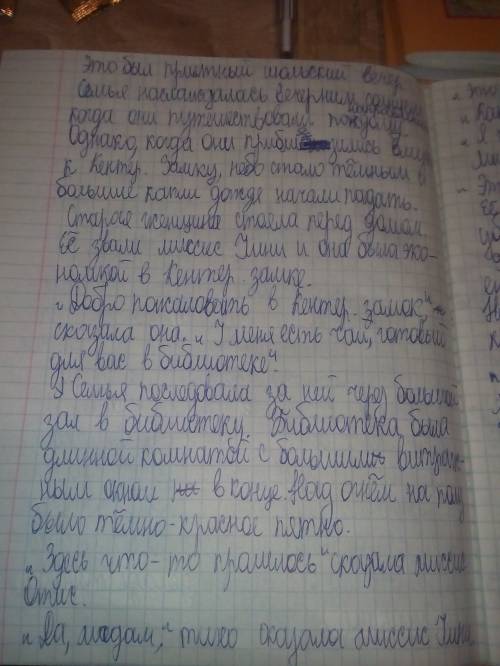 Это был приятный июльский вечер.
Семья наслаждалась вечерним солнцем
когда они путешествовали
Однако, когда они приблизились
к Кентер. Замку, небо стало тёмным и
большие капли дождя начали падать.
Старая женщина стояла перед домом.
Её звали миссис Умни и она была эко-
номкой в Кентер. замке.
„Добро пожаловать в Кентер. замок" -
сказала она. „У меня есть чай, готовый
для вас в библиотеке".
Семья последовала за ней через большой
зал в библиотеку. Библиотека была
длинной комнатой с большим витраж-
ным окном в конце. Над огнём на полу
было тёмно-красное пятно.
„Здесь что-то пролилось" сказала миссис
Отис.
„Да, мадам," тихо сказала миссис Умни
„ Это
„ Я
„ Эт